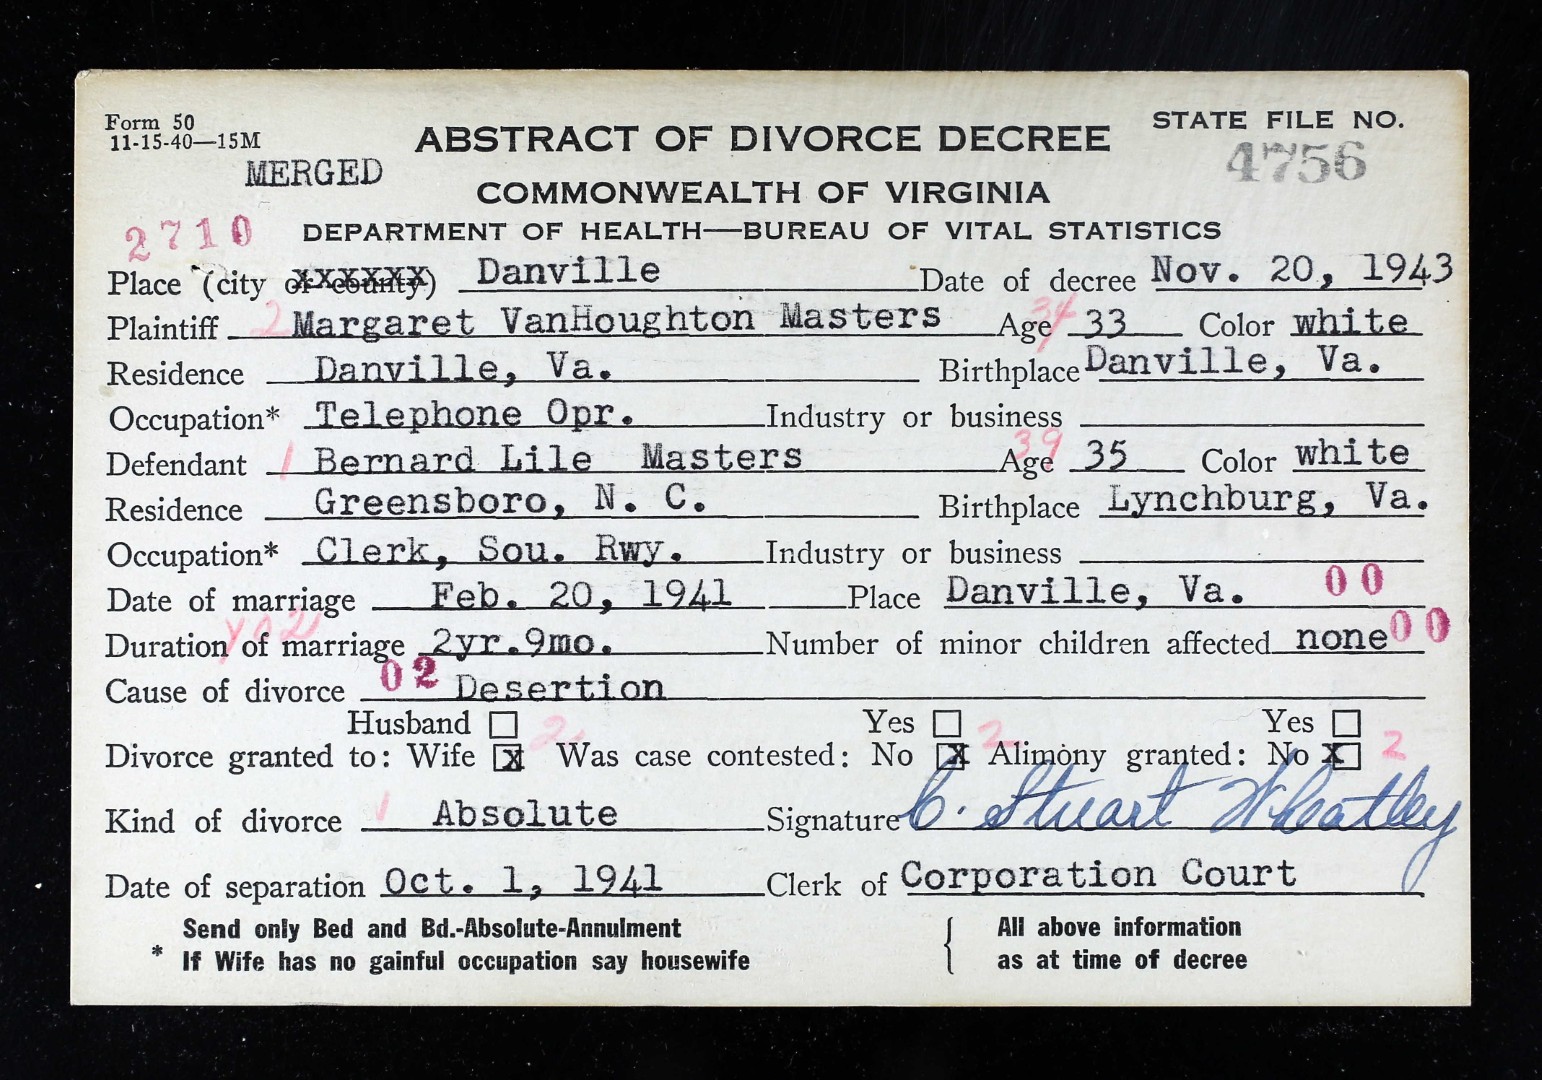 Form 50
11-15-40—15M
STATE FILE NO.
ABSTRACT OF DIVORCE DECREE
4756
MERGED
COMMONWEALTH OF VIRGINIA
2710
DEPARTMENT OF HEALTH—BUREAU OF VITAL STATISTICS
Place (city or county) Danville Date of decree Nov. 20, 1943
Plaintiff 2 Margaret VanHoughton Masters Age 34 33 Color white
Residence Danville, Va. Birthplace Danville, Va.
Occupation* Telephone Opr. Industry or business
Defendant 1 Bernard Lile Masters Age 39 35 Color white
Residence Greensboro, N. C. Birthplace Lynchburg, Va.
Occupation* Clerk, Sou. Rwy. Industry or business
Date of marriage Feb. 20, 1941 Place Danville, Va. 00
Duration of marriage 2yr.9mo. Number of minor children affected none 00
Cause of divorce 02 Desertion
Husband Yes Yes
Divorce granted to: Wife x 2 Was case contested: No x 2 Alimony granted: No x 2
Kind of divorce 1 Absolute Signature C. Stuart Wheatley
Date of separation Oct. 1, 1941 Clerk of Corporation Court
Send only Bed and Bd.-Absolute-Annulment All above information
* If Wife has no gainful occupation say housewife as at time of decree